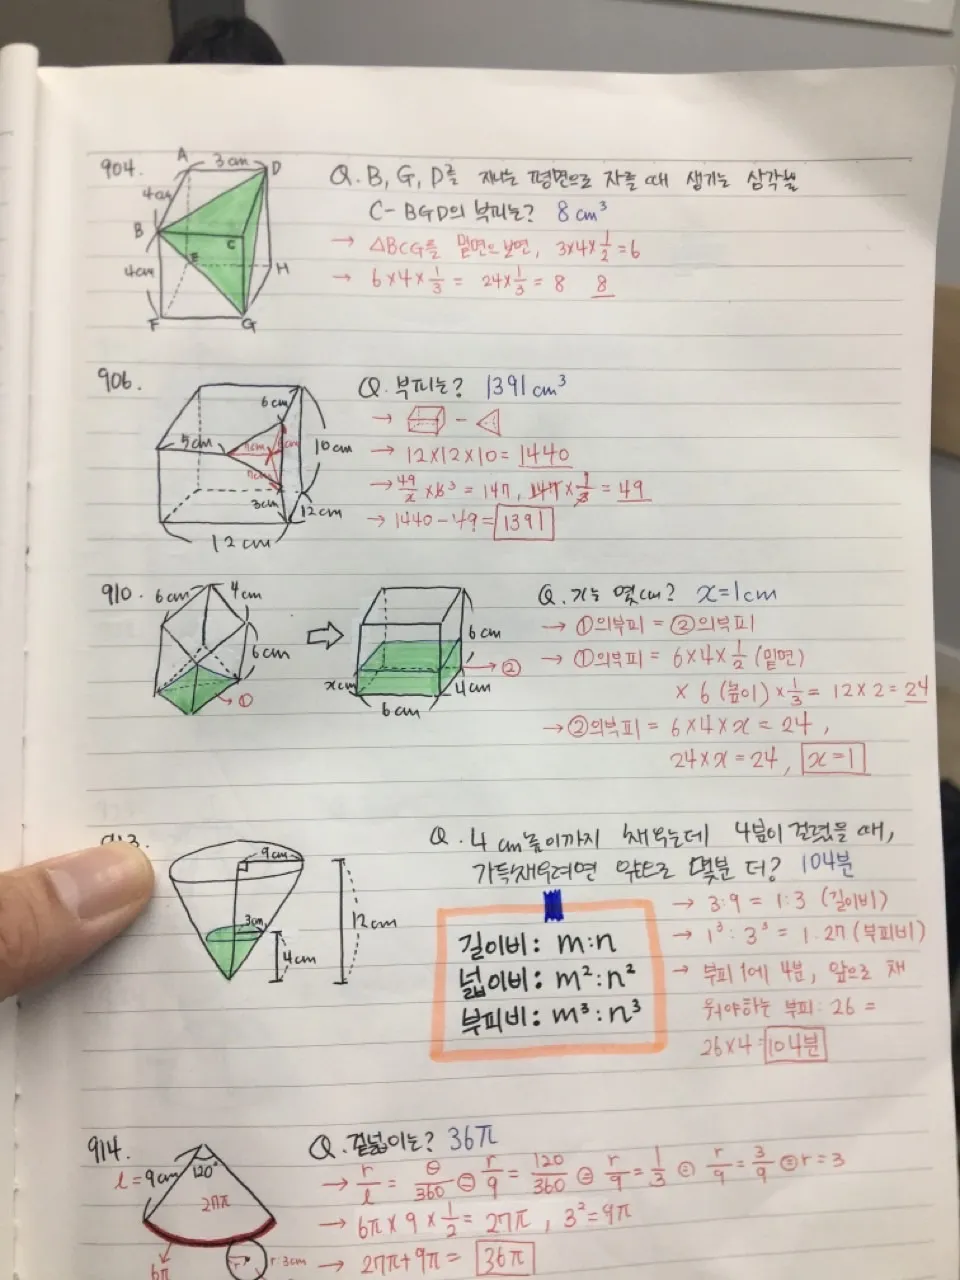 904.
A 3cm D
4cm
B C
E H
4cm
F G
Q. B, G, D를 지나는 평면으로 자를 때 생기는 삼각뿔
C-BGD의 부피는? 8cm³
→ △BCG를 밑면으로 보면, 3×4×1/2=6
→ 6×4×1/3 = 24×1/3 = 8 8
906.
6cm
5cm
10cm
3cm 12cm
12cm
Q. 부피는? 1391cm³
→ -
→ 12×12×10= 1440
= 147, 147×1/3 = 49
→ 1440-49= 1391
910.
6cm 4cm
6cm
①
6cm
②
xcm 4cm
6cm
Q. x는 몇cm? x=1cm
→ ①의부피 = ②의부피
→ ①의부피 = 6×4×1/2 (밑면)
× 6 (높이) ×1/3 = 12×2=24
→ ②의부피 = 6×4×x = 24,
24×x=24, x=1
913.
9cm
3cm
4cm
12cm
Q. 4cm높이까지 채우는데 4분이 걸렸을 때,
가득채우려면 앞으로 몇분 더? 104분
길이비: m:n
넓이비: m²:n²
부피비: m³:n³
→ 3:9 = 1:3 (길이비)
→ 1³:3³ = 1:27 (부피비)
→ 부피 1에 4분, 앞으로 채
워야하는 부피: 26 =
26×4= 104분
914.
l=9cm 120°
27π
6π
r r=3cm
Q. 겉넓이는? 36π
→ r/l = θ/360 ⊜ r/9 = 120/360 ⊜ r/9 = 1/3 ⊜ r/9 = 3/9 ⊜ r=3
→ 6π×9×1/2= 27π, 3²=9π
→ 27π+9π= 36π